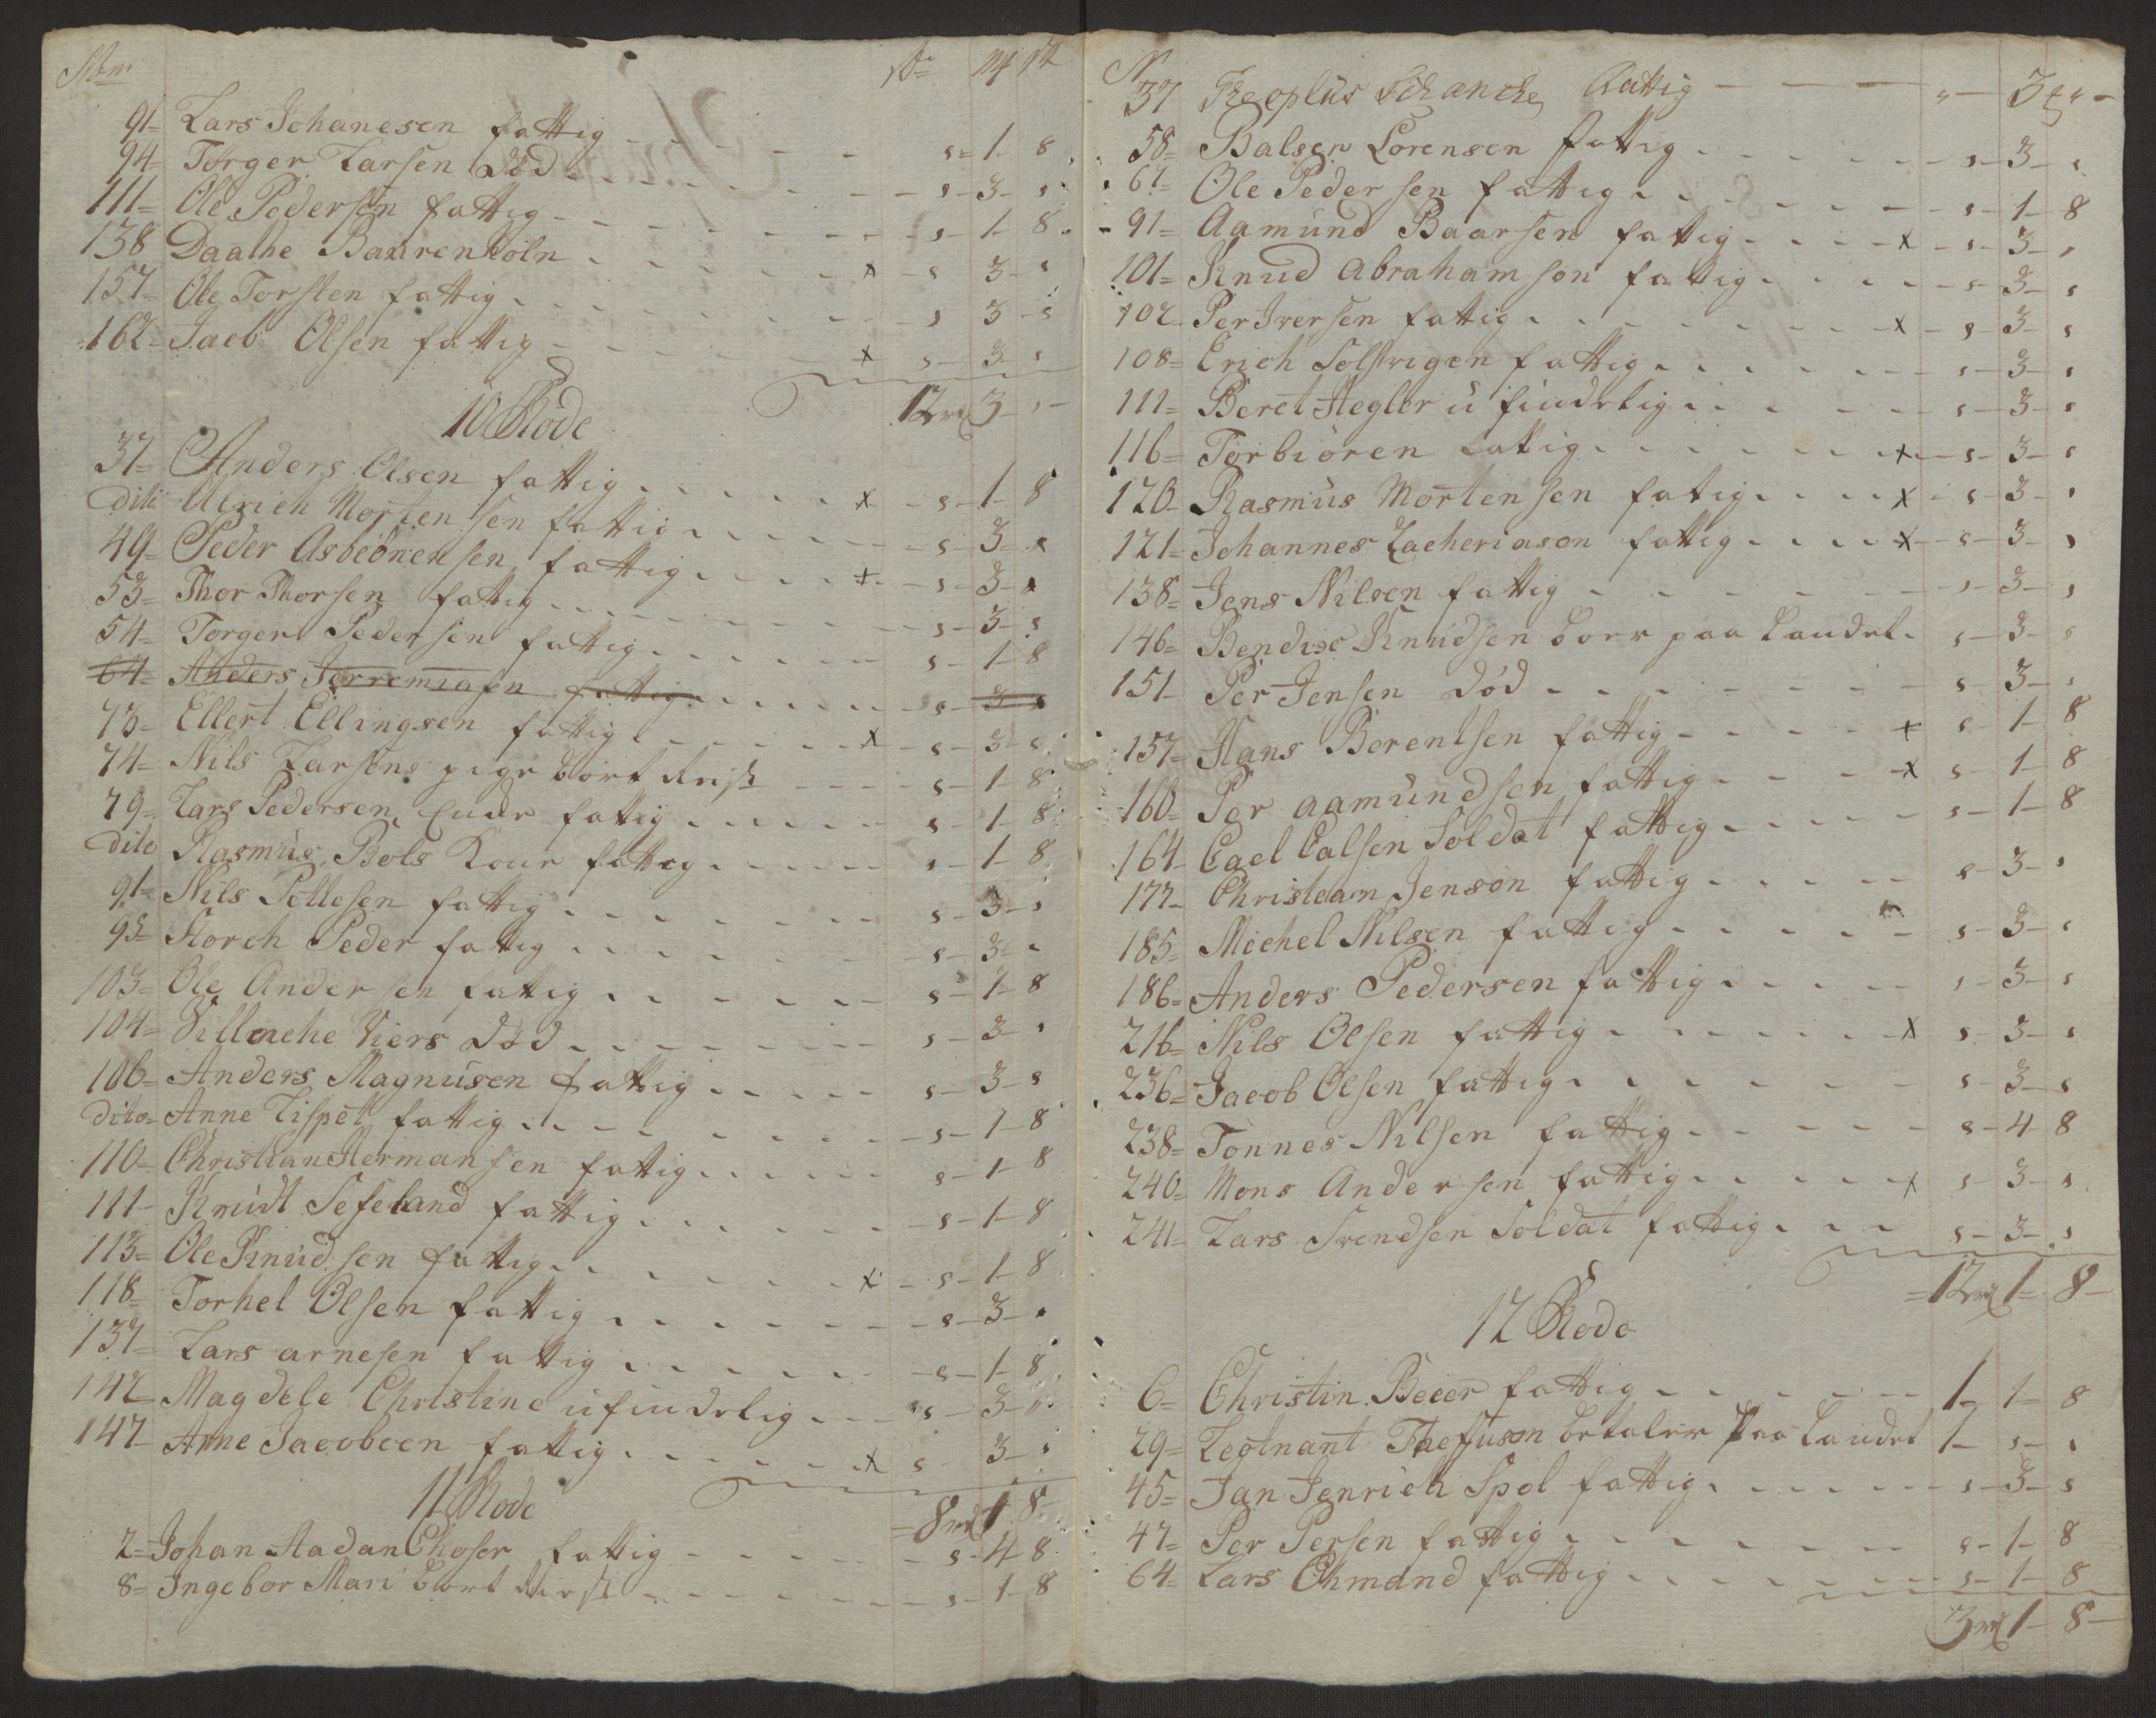 Num Rdr M S
91= Lars Johanesen fattig - - - s= 1- 8
94= Torger Larsen død - - - s- 3- s
111= Ole Pedersen fattig - - - s- 1- 8
138 Daathe Baarenholn - - - x - s 3- s
157= Ole Torsten fattig - - - s 3- s
162= Jacb Olsen fattig - - - x s- 3- s
12rd 3- s-
10 Rode
37= Anders Olsen fattig - - - x - s- 1- 8
dito Ulrich Mortensen fattig - - - s- 3- s
49= Peder Asbiønensen fattig - - - x - s- 3- s
53= Thor Thorsen fattig - - - s- 3- s
54= Torger Pedersen fattig - - - s- 1- 8
64= Anders Jerremiasen fattig - - - s- 3- s
73= Ellert Ellingsen fattig - - - x - s- 3- s
74= Nils Larsens pige bort reist - - - s- 1- 8
79= Lars Pedersen Enke fattig - - - s- 1- 8
dito Rasmus Bols Kone fattig - - - s- 1- 8
91= Nils Pettesen fattig - - - s- 3- s
95= Storch Peder fattig - - - s- 3- s
103= Ole Andersen fattig - - - s- 1- 8
104= Villache Viers død - - - s- 3- s
106= Anders Magnusen fattig - - - s- 3- s
dito= Anne Lispet fattig - - - s- 1- 8
110= Christian Hermansen fattig - - - s- 1- 8
111- Knudt Sefeland fattig - - - s- 1- 8
113= Ole Knudsen fattig - - - x - s- 1- 8
118= Torkel Olsen fattig - - - s- 3- s
137= Lars arnesen fattig - - - s- 1- 8
142= Magdele Christine ufindelig - - - s- 3- s
147- Arne Jacobsen fattig - - - x s- 3- s
=8rd 1 8-
11 Rode
2= Johan Aadan fattig - - - s- 4- 8
8= Ingebor Mari bort reist - - - s- 1- 8
N
37 Theoplus Schanche fattig - - - " - 3 " -
58= Balser Lorensen fattig - - - s- 3- s
67= Ole Pedersen fattig - - - s- 1- 8
91= Aamund Baarsen fattig - - - x - s- 3- s
101= Knud Abrahamsøn fattig - - - s- 3- s
102- Per Iversen fattig - - - x - s- 3- s
108= Erich Solsvigen fattig - - - s- 3- s
111= Beret Hegler ufindelig - - - s- 3- s
116= Torbiøren fattig - - - x - s- 3- s
120- Rasmus Mortensen fatig - - - x - s- 3- s
121= Johannes Zacheriason fattig - - - x - s- 3- s
138= Jens Nilsen fattig - - - s- 3- s
146= Bendix Knudsen boer paa Landet - s- 3- s
151- Per Jensen død - - - s- 3- s
157= Hans Berentsen fattig - - - x s- 1- 8
160= Per Aamundsen fattig - - - x s- 1- 8
164- Cael Calsen Soldat fattig - - - s- 1- 8
177- Christean Jenson fattig - - - s- 3- s
185= Michel Nilsen fattig - - - s- 3- s
186= Anders Pedersen fattig - - - s- 3- s
216= Nils Olsen fattig - - - x s- 3- s
236= Jacob Olsen fattig - - - s- 3- s
238= Tønnes Nilsen fattig - - - s- 4 8
240= Mons Andersen fattig - - - x s- 3- s
241= Lars Svendsen Soldat fattig - - - s- 3- s
=12rd 1- 8-
12 Rode
6= Christin Beeer fattig - - - 1- 1- 8
29= Leotnant betaler paa Landet 1- s- s
45= Jan Jenrich Spol fattig - - - s- 3- s
47= Per Persen fattig - - - s- 1- 8
64= Lars Ehmand fattig - - - s- 1- 8
3rd 1- 8-